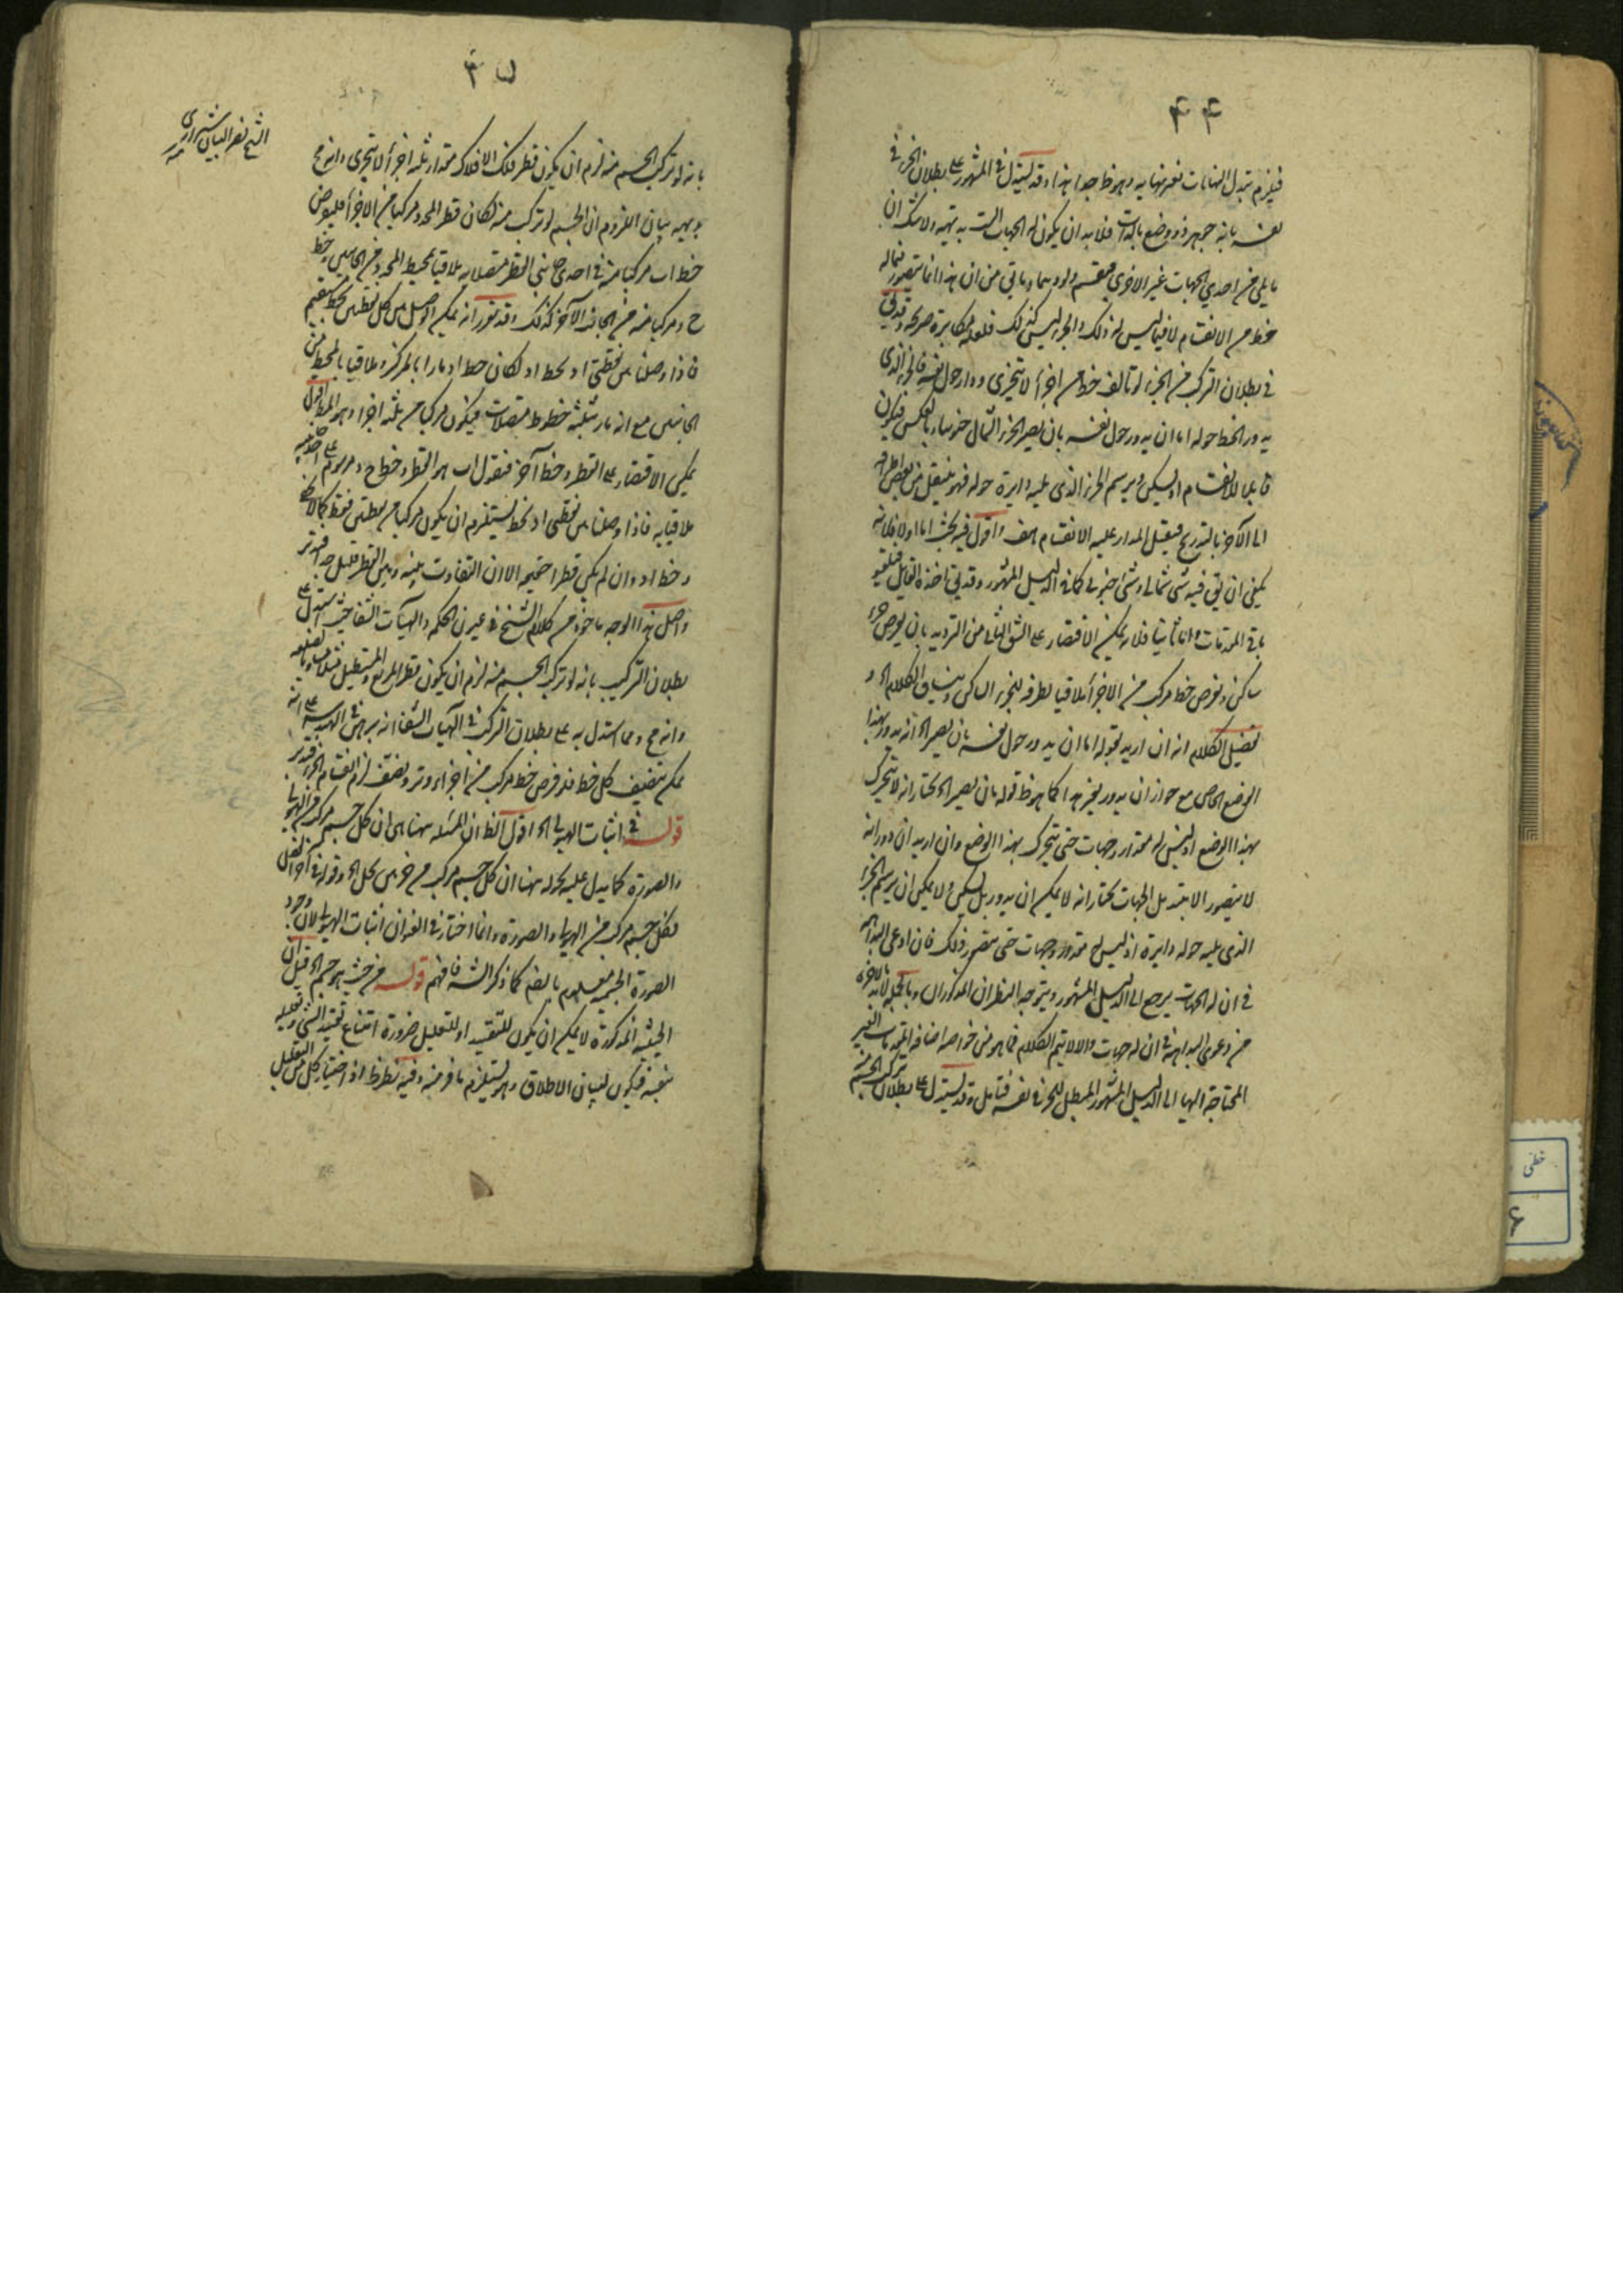 ۴۴
فيلزم تبدل النهايات بغير نهاية وهو ظ جدا هذا وقد يستدل في المشهور على بطلان الجزء في
نفسه بانه جوهر ذو وضع بالذات فلا بد ان يكون له الجهات الست بديهة ولا شك ان
ما يلي من احدى الجهات غير الاخرى فينقسم ولو وهما وما قيل من ان هذا انما يتصور فيما له
حظ من الانقسام لا فيما ليس له ذلك والجزء ليس كذلك فلعله مكابرة صريحة وقد يق
في بطلان التركب من الجزء لو تالف خط من اجزاء لا يتجزى ودار حول نفسه فالجزء الذي
يدور الخط حوله اما ان يدور حول نفسه بان يصير الجزء الشمال جنوبيا وبالعكس فيكون
قابلا للانقسام او يسكن ويرسم الجزء الذي يليه دايرة حوله فهو ينتقل من بعض اطرافه
الى الآخر بالتدريج فيقبل المدار عليه الانقسام هف واقول فيه بحث اما اولا فلانه
يكفي ان يق فيه شئ شمالي وشئ جنوبي كما في الدليل المشهور وقد يق اخذه القايل فيلغو
باقي المقدمات واما ثانيا فلانه يمكن الاقتصار على الشق الثاني من الترديد بان يفرض جزء
ساكن ونفرض خط مركب من الاجزاء ملاقيا بطرفه للجزء الساكن وينساق الكلام الخ و
تفصيل الكلام انه ان اريد بقوله اما ان يدور حول نفسه بان يصير الخ انه يدور بهذا
الوضع الخاص مع جواز ان يدور بغير هذا كما هو ظ قوله بان يصير الخ نختار انه لا يتحرك
بهذا الوضع اذ ليس له مقدار وجهات حتى يتحرك بهذا الوضع وان اريد ان دورانه
لا يتصور الا بتبدل الجهات نختار انه لا يمكن ان يدور بل يسكن ولا يمكن ان يرسم الجزء
الذي يليه حوله دايرة اذ ليس له مقدار وجهات حتى يتصور ذلك فان ادعى البداهة
في ان له الجهات يرجع الى الدليل المشهور ويتوجه النظران المذكوران وبالجملة لا بد بالاخرة
من دعوى البداهة في ان له جهات والا لا يتم الكلام فما هو من خواصه اضافة المقدمات الغير
المحتاجة اليها الى الدليل المشهور المبطل للجزء في نفسه فتامل وقد يستدل على بطلان تركب الجسم منه
۴۵
بانه لو تركب الجسم منه لزم ان يكون قطر فلك الافلاك مقدار ثلثة اجزاء لا يتجزى وانه مح
بديهة بيان اللزوم ان الجسم لو تركب منه لكان قطر المحدد مركبا من الاجزاء فليفرض
خط اب مركبا منه في احدى جانبي القطر متصلا به ملاقيا لمحيط المحدد من الجانبين وخط
ح د مركبا منه من الجانب الآخر كذلك وقد تقرر انه يمكن الوصل بين كل نقطتين بخط مستقيم
فاذا وصلنا بين نقطتي ا د بخط ا د لكان خط ا د مارا بالمركز وملاقيا بالمحيط من
الجانبين مع انه مار بثلثة خطوط متصلات فيكون مركبا من ثلثة اجزاء وهو المط اقول
يمكن الاقتصار على القطر وخط آخر فنقول اب هو القطر وخط ح د مرسوم على احد جنبيه
ملاقيا به فاذا وصلنا بين نقطتي ا د بخط يستلزم ان يكون مركبا من نقطتين فقط كما لا يخفى
وخط ا د وان لم يكن قطرا حقيقة الا ان التفاوت بينه وبين القطر قليل جدا فتدبر
واصل هذا الوجه ماخوذ من كلام الشيخ في عيون الحكمة والهيات الشفا حيث استدل على
بطلان التركيب بانه لو تركب الجسم منه لزم ان يكون قطر المربع المستطيل مثلا مساويا لضلعه
وانه مح ومما استدل به على بطلان التركب في الهيات الشفا انه برهن في الهندسة على انه
يمكن تنصيف كل خط فلو فرض خط مركب من اجزاء وتر ونصف لزم انقسام الجزء فتدبر
قوله في اثبات الهيولى الخ اقول الظ ان المسئله ههنا هي ان كل جسم مركب من الهيولى
والصورة كما يدل عليه قوله ههنا ان كل جسم مركب من جزئين يحل الخ وقوله في آخر الفصل
فكل جسم مركب من الهيولى والصورة وانما اختار في العنوان اثبات الهيولى لان وجود
الصورة الجسمية معلوم بالضرورة كما ذكر الشه فافهم قوله من حيث هو جسم الخ قيل ان
الحيثية المذكورة لا يمكن ان يكون للتقييد او للتعليل ضرورة امتناع تقييد الشئ وتعليله
بنفسه فيكون لبيان الاطلاق وهو يستلزم ما فرضه وفيه نظر ظ اذ اختيار كل من التعليل
الشيخ نصر البيان شيرازي
منه
خطی